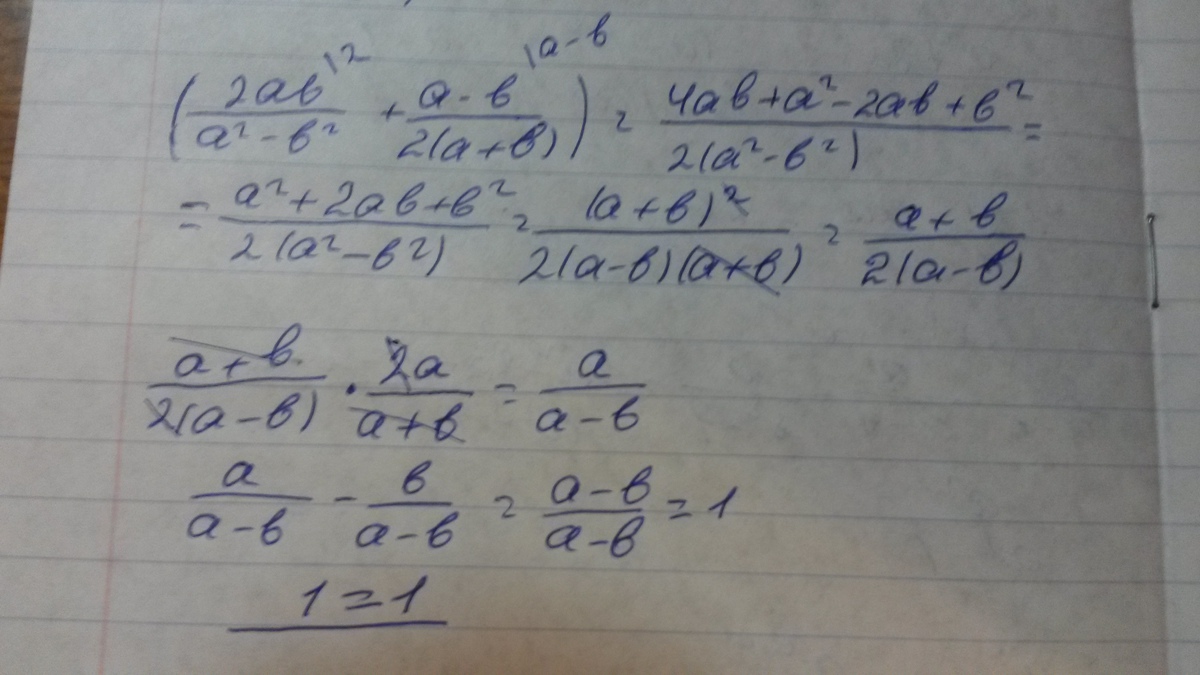 (2ab/(a² - b²) |2 + (a - b)/(2(a + b)) |a - b) = (4ab + a² - 2ab + b²)/(2(a² - b²)) =
= (a² + 2ab + b²)/(2(a² - b²)) = (a + b)²/(2(a - b)(a + b)) = (a + b)/(2(a - b))
(a + b)/(2(a - b)) · 2a/(a + b) = a/(a - b)
a/(a - b) - b/(a - b) = (a - b)/(a - b) = 1
1 = 1